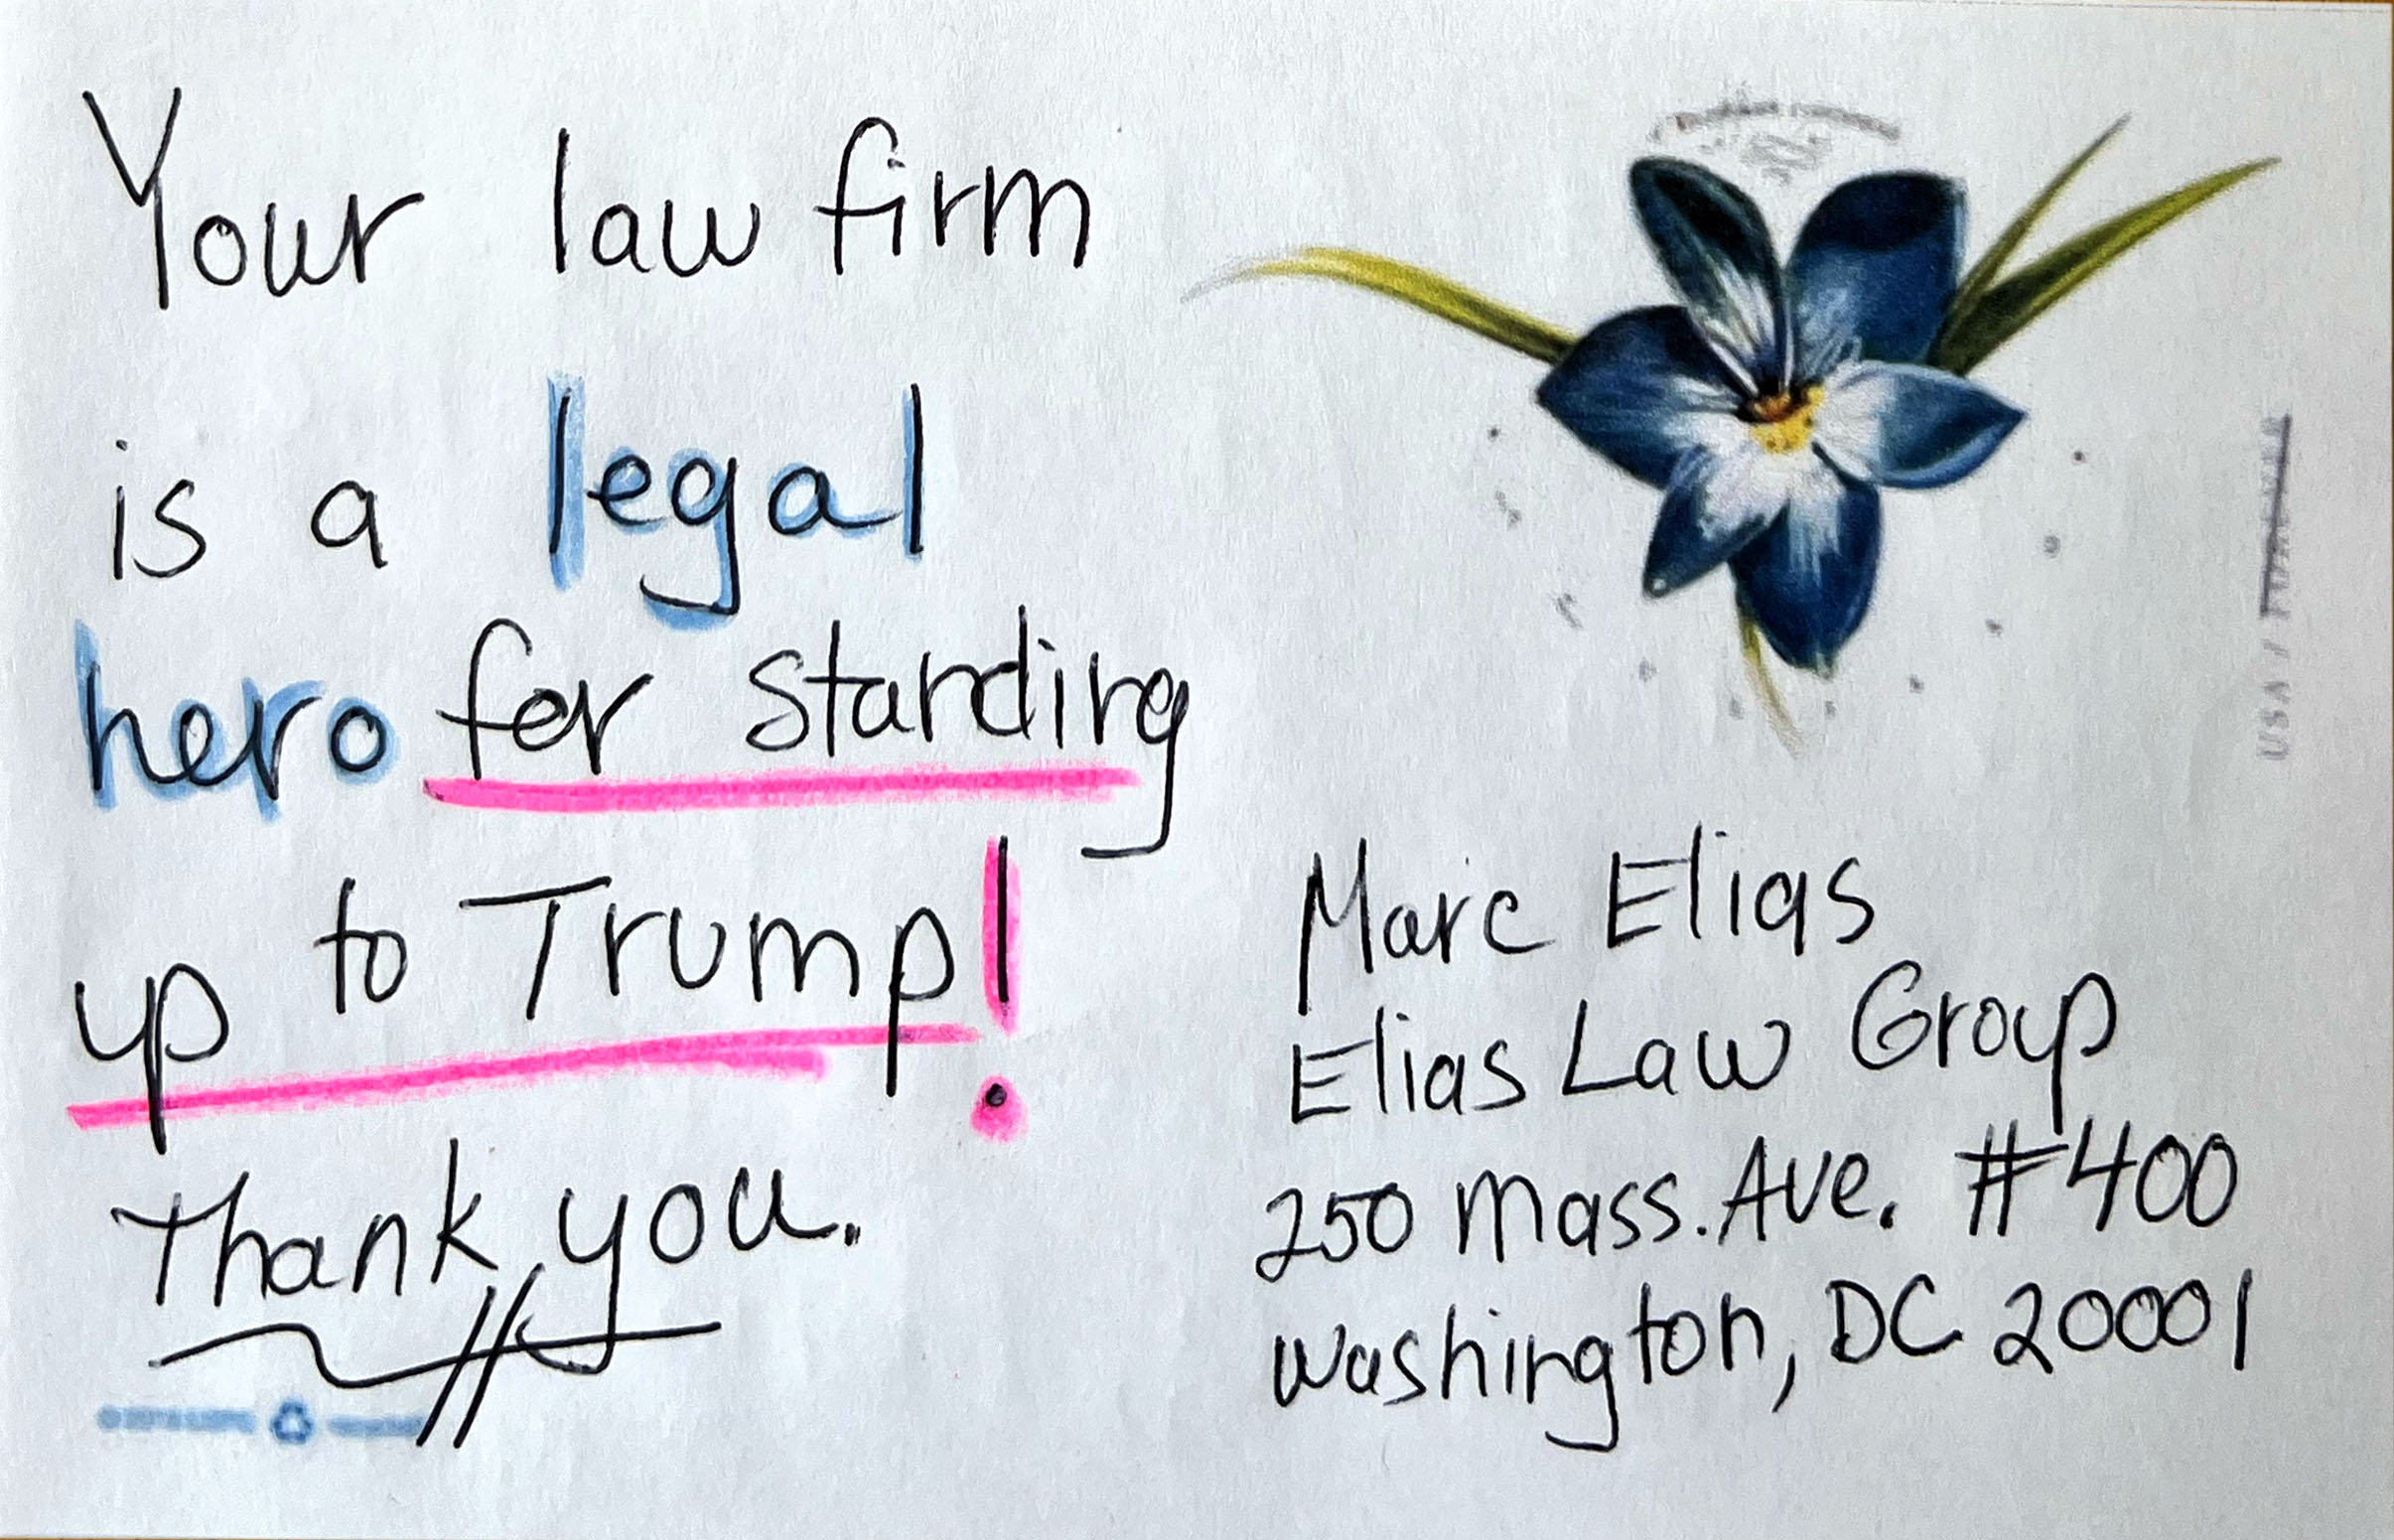 Your law firm
is a legal
hero for standing
up to Trump!
Thank you.
Marc Elias
Elias Law Group
250 Mass. Ave. #400
Washington, DC 20001
USA /